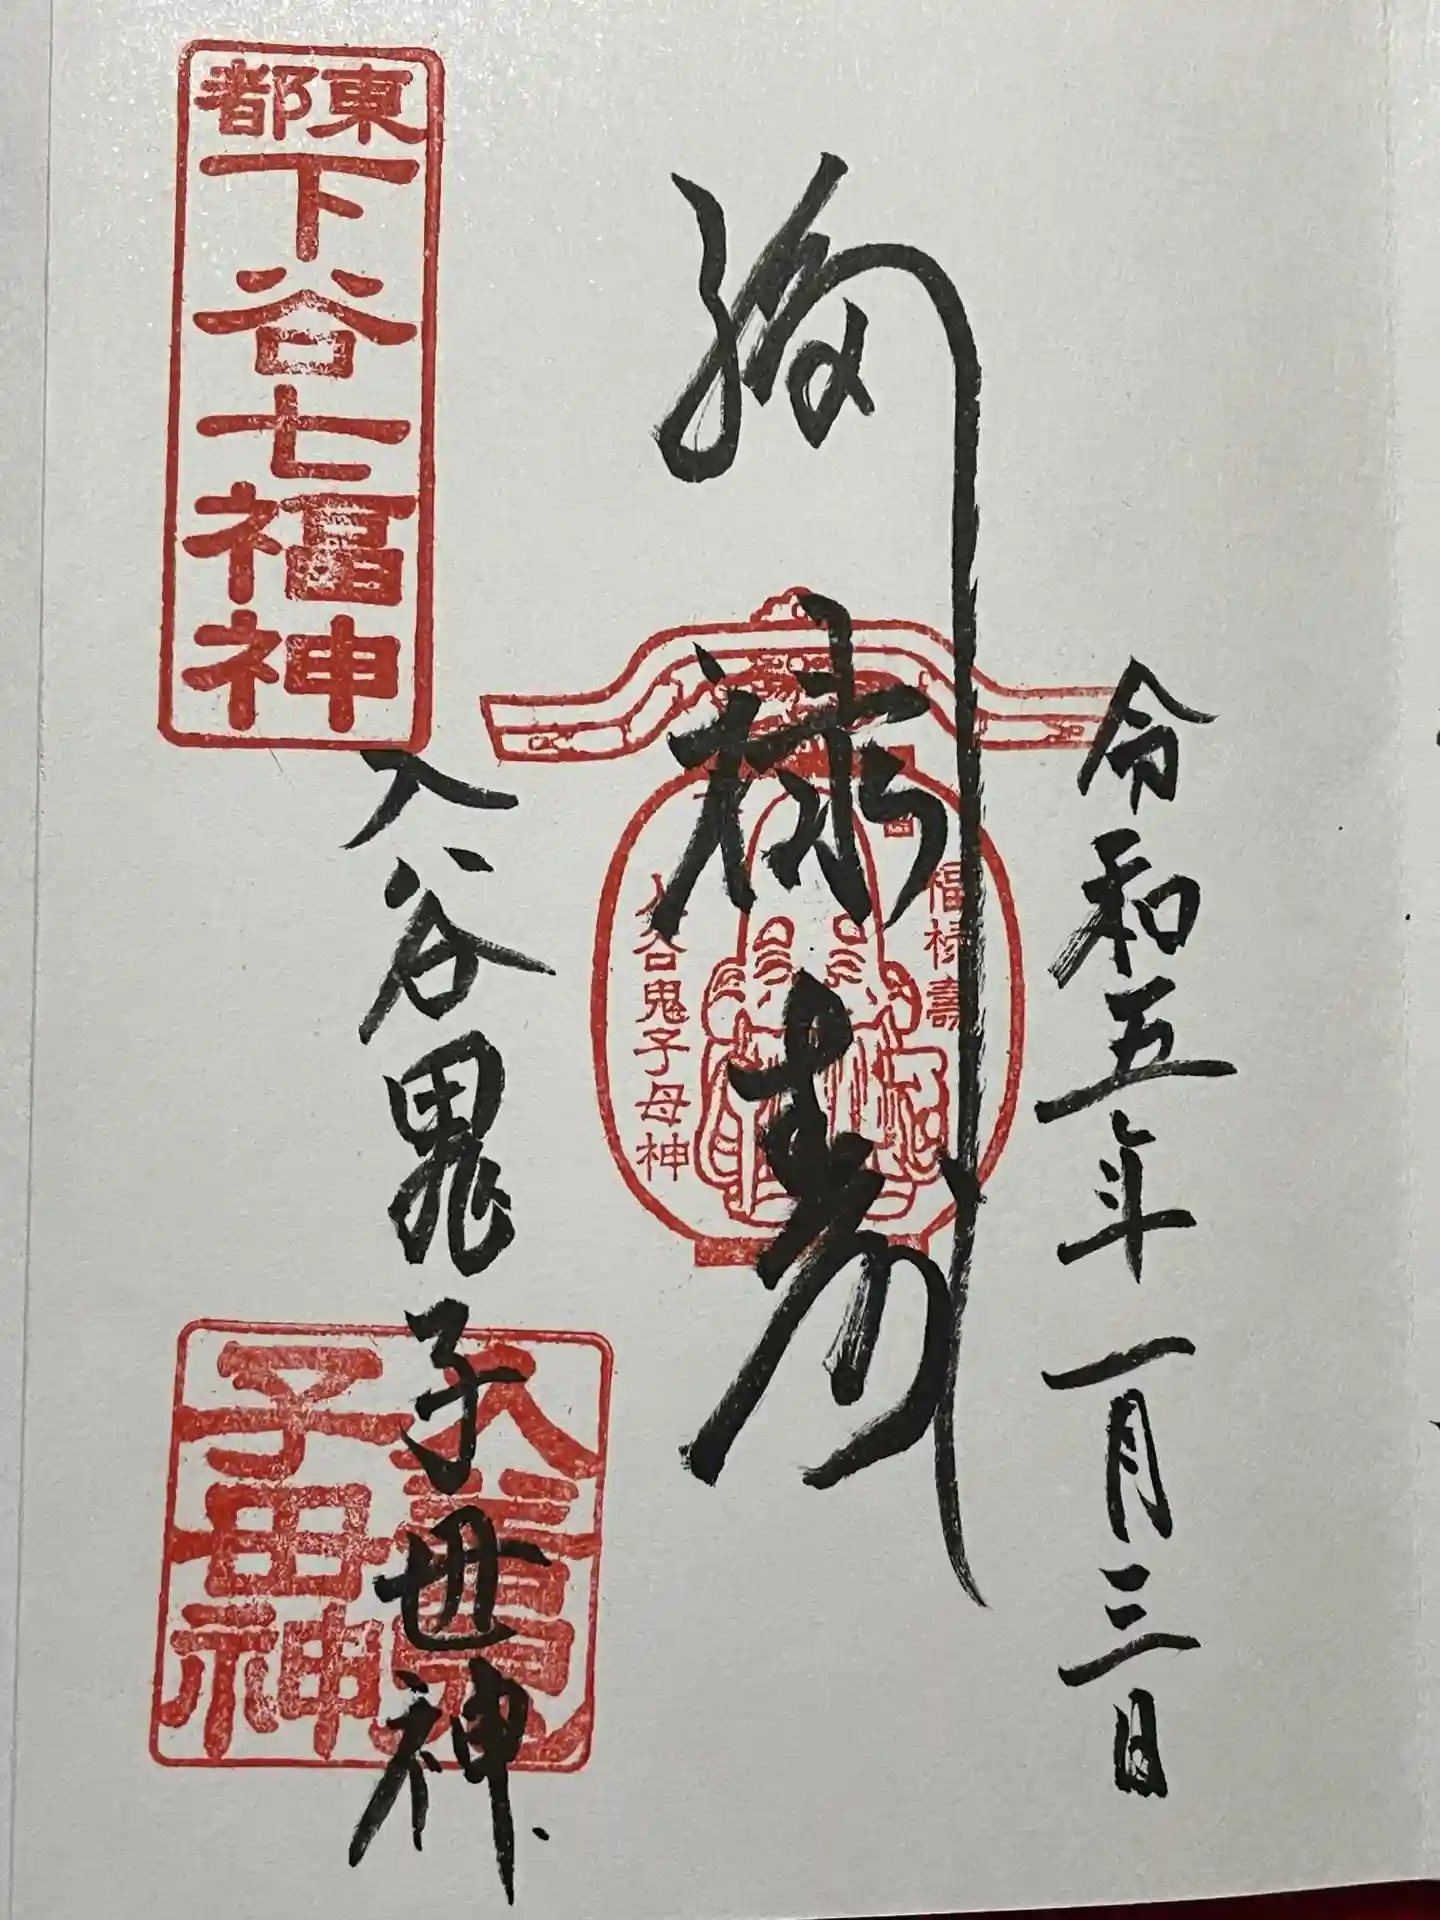 令和五年一月三日
福禄寿
福禄壽
入谷鬼子母神
入谷鬼子母神
東都
下谷七福神
入谷鬼
子母神